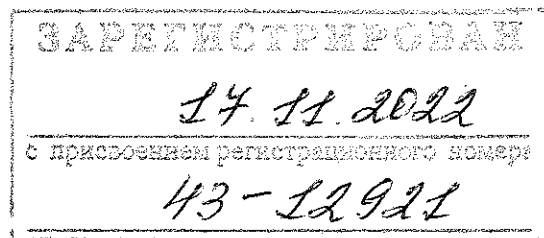 ЗАРЕГИСТРИРОВАН
17.11.2022
с присвоением регистрационного номера
43-12921